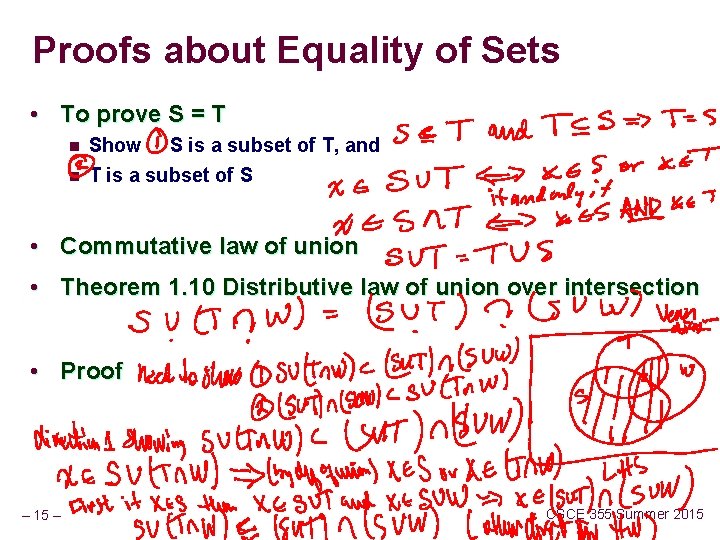 Proofs about Equality of Sets
• To prove S = T
Show ① S is a subset of T, and
② T is a subset of S
S ⊆ T and T ⊆ S ⟹ T = S
x ∈ S ∪ T ⟺ x ∈ S or x ∈ T
if and only if
x ∈ S ∩ T ⟺ x ∈ S AND x ∈ T
• Commutative law of union
S ∪ T = T ∪ S
• Theorem 1.10 Distributive law of union over intersection
S ∪ (T ∩ W) = (S ∪ T) ∩ (S ∪ W)
Venn
T
W
S
LHS
• Proof need to show ① S ∪ (T ∩ W) ⊂ (S ∪ T) ∩ (S ∪ W)
② (S ∪ T) ∩ (S ∪ W) ⊂ S ∪ (T ∩ W)
Direction 1 showing S ∪ (T ∩ W) ⊂ (S ∪ T) ∩ (S ∪ W)
x ∈ S ∪ (T ∩ W) ⟹ (by def of union) x ∈ S or x ∈ (T ∩ W)
First if x ∈ S then x ∈ S ∪ T and x ∈ S ∪ W ⟹ x ∈ (S ∪ T) ∩ (S ∪ W)
S ∪ (T ∩ W) ⊆ (S ∪ T) ∩ (S ∪ W)
– 15 –
CSCE 355 Summer 2015